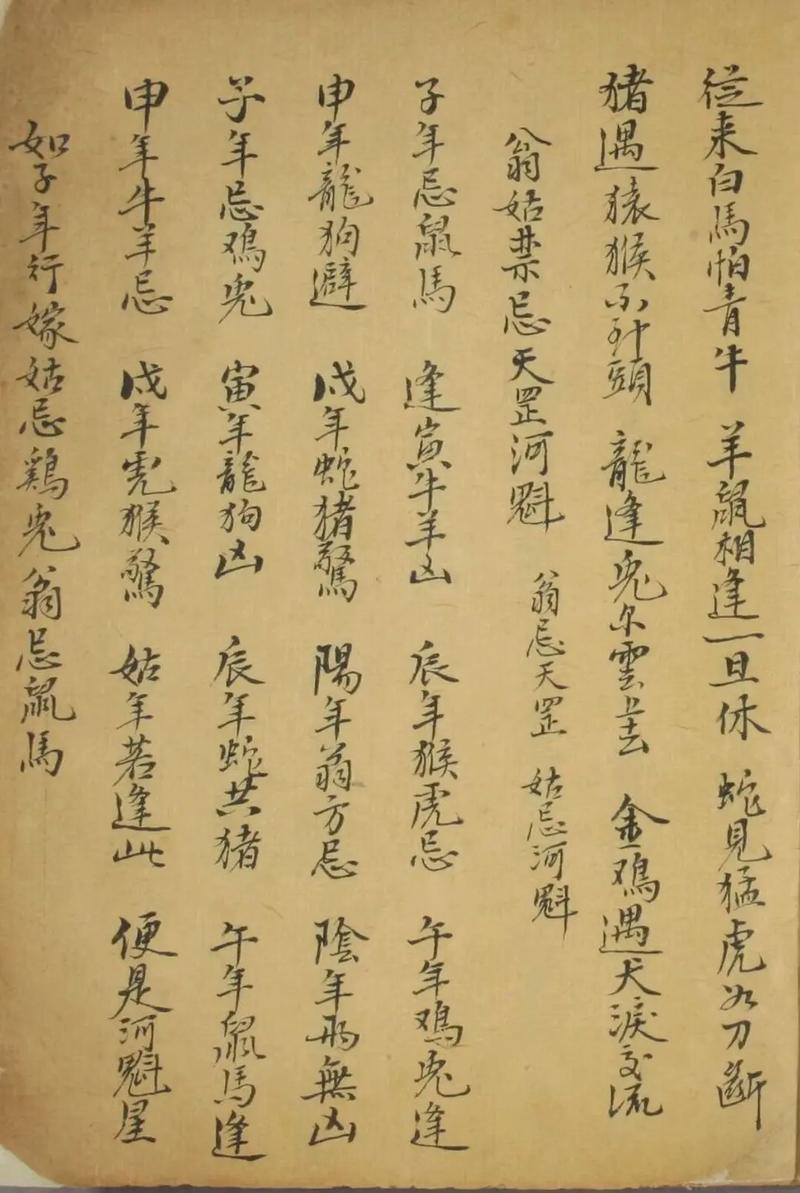 從来白馬怕青牛 羊鼠相逢一旦休 蛇見猛虎如刀斷
猪遇猿猴不到頭 龍逢兎尔雲 去 金鳮遇犬淚交流
翁姑禁忌天罡河魁 翁忌天罡 姑忌河魁
子年忌鼠馬 逢寅牛羊凶 辰年猴虎忌 午年鳮兎逢
申年龍狗避 戌年蛇猪驚 陽年翁方忌 陰年为無凶
子年忌鳮兎 寅年龍狗凶 辰年蛇共猪 午年鼠馬逢
申年牛羊忌 戌年虎猴驚 姑年若逢此 便是河魁星
如子年行嫁姑忌鷄兎翁忌鼠馬